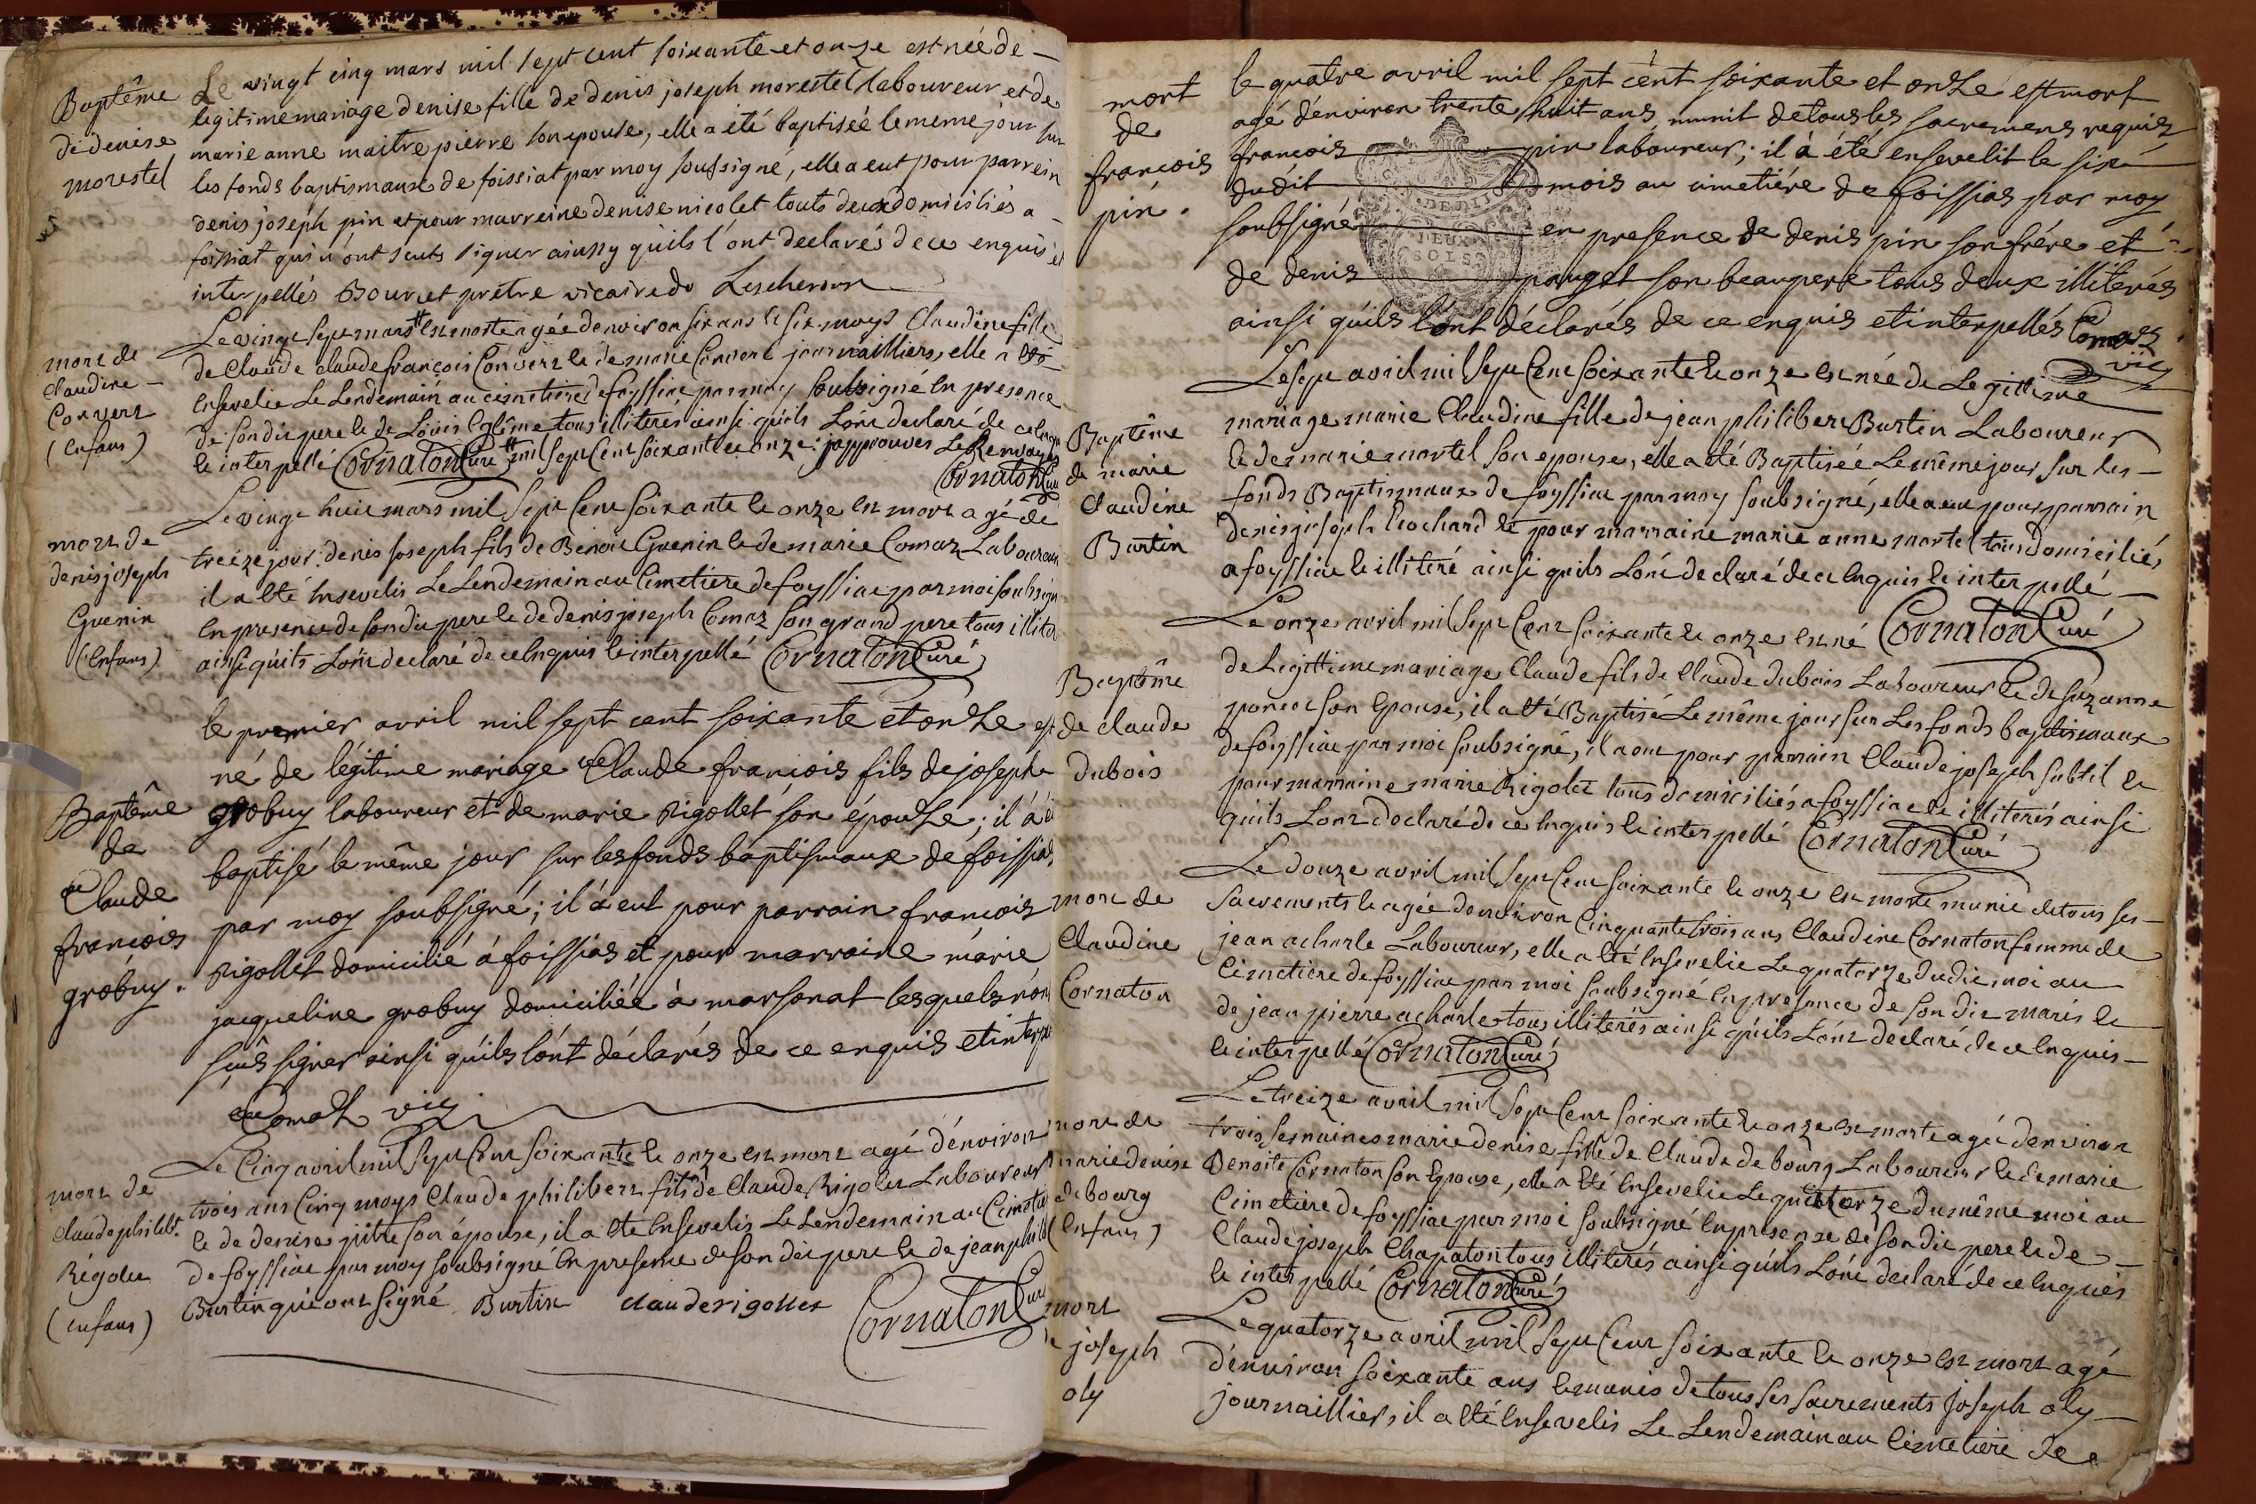 Baptême
de denise
morestel
Le vingt cinq mars mil sept cent soixante et onze est née de
legitime mariage denise fille de denis joseph morestel laboureur et de
marie anne maitrepierre son epouse, elle a été baptisée le meme jour sur
les fonds baptismaux de foissiat par moy soussigné, elle a eut pour parrein
denis joseph pin et pour marreine denise nicolet touts deux domiciliés a
foissiat qui n'ont sçuts signer ainssy quils l'ont declarés de ce enquis et
interpellés Bourcet prêtre vicaire de Lescheroux
mort de
Claudine
Convert
(Enfans)
Le vingt sept mars # est morte agée denviron six ans et six moys Claudine fille
de Claude claude françois Convert et de marie Convert journailliers, elle a été
Ensevelie Le Lendemain au cimetiere de foyssiat par moy soubsigné En presence
de son dit pere et de Loüis tous illiterés ainsi quils L'ont declaré de ce Enquis
et interpellé Cornaton Curé # mil sept Cent soixante et onze. japprouves Le Renvoy
Cornaton Curé
mort de
denis joseph
Guenin
(Enfans)
Le vingt huit mars mil sept Cent soixante et onze est mort agé de
treize jour. denis joseph fils de Benoit Guenin et de marie Comaz Laboureur
il a Eté Ensevelis Le Lendemain au Cimetiere de foyssiat par moi soubsigné
En presence de son dit pere et de denis joseph Comaz son grand pere tous illiter
ainsi quils L'ont declaré de ce Enquis et interpellé Cornaton Curé
Baptême
de
Claude
françois
grobuy.
le premier avril mil sept cent soixante et onze est
né de légitime mariage Claude françois fils de joseph
grobuy laboureur et de marie Rigollet son épouse; il à été
baptisé le même jour sur les fonds baptismaux de foissiat
par moy soubsigné; il à eut pour parrain françois
Rigollet domicilié à foissiat et pour marraine marie
jacqueline grobuy domiciliée à marsonat lesquels n'ont
sçus signer ainsi qu'ils l'ont déclarés de ce enquis et interpe
Comaz vic
mort de
Claude philibt.
Rigolet
(Enfans)
Le Cinq avril mil sept Cent soixante et onze est mort agé d'environ
trois ans Cinq moys Claude philibert fils de Claude Rigolet Laboureur
et de denise son épouse, il a été Ensevelis Le Lendemain au Cimetiere
de foyssiat par moy soubsigné En presense de son dit pere et de jean philib
Burtin qui ont signé Burtin claude rigollet Cornaton Curé
mort
de
françois
pin.
le quatre avril mil sept cent soixante et onze est mort
agé d'environ trente huit ans munit de tous les sacremens requis
françois pin laboureur; il à été ensevelit le sixe
dudit mois au cimetiére de foissiat par moy
soubsigné en presence de denis pin son frére et
de denis pauget son beaupere tous deux illiterés
ainsi qu'ils l'ont déclarés de ce enquis et interpellés Comaz
vic
DEUX
SOLS
Baptême
de marie
Claudine
Burtin
Le sept avril mil sept Cent soixante et onze est née de Legittime
mariage marie Claudine fille de jean philibert Burtin Laboureur
et de marie martel son epouse, elle a été Baptisée Le même jour, sur Les
fonds Baptismaux de foyssiat par moy soubsigné, elle a eu pour parrain
denis joseph brochard et pour marraine marie anne martel tous domiciliés
a foyssiat et illiteré ainsi quils L'ont declaré de ce Enquis et interpellé
Cornaton Curé
Baptême
de claude
Dubois
Le onze avril mil sept Cent soixante et onze est né
de Legittime mariage Claude fils de Claude dubois Laboureur et de suzanne
poncet son Epouse, il a été Baptisé Le même jour sur Les fonds baptismaux
de foyssiat par moi soubsigné, il a eu pour parrain Claude joseph subtil et
pour marraine marie Rigolet tous domiciliés a foyssiat et illiterés ainsi
qu'ils L'ont declaré de ce Enquis et interpellé Cornaton Curé
mort de
Claudine
Cornaton
Le douze avril mil sept Cent soixante et onze est morte munie de tous ses
sacrements et agée denviron Cinquante trois ans Claudine Cornaton femme de
jean acharle Laboureur, elle a été Ensevelie Le quatorze dudit moi au
Cimetiere de foyssiat par moi soubsigné En presence de son dit maris et
de jean pierre acharle tous illiterés ainsi qu'ils L'ont declaré de ce Enquis
et interpellé Cornaton Curé
mort de
marie denise
debourg
(Enfans)
Le treize avril mil sept Cent soixante et onze est morte agée denviron
trois semaines marie denise fille de Claude debourg Laboureur et de marie
Benoite Cornaton son Epouse, elle a été Ensevelie Le quatorze du même moi au
Cimetiere de foyssiat par moi soubsigné En presense de son dit pere et de
Claude joseph Chapaton tous illiterés ainsi quils L'ont declaré de ce Enquis
et interpellé Cornaton Curé
mort
de joseph
oly
Le quatorze avril mil sept Cent soixante et onze est mort agé
d'environ soixante ans et munis de tous ses sacrements joseph oly
journaillier, il a été Ensevelis Le Lendemain au Cimetiere de
27